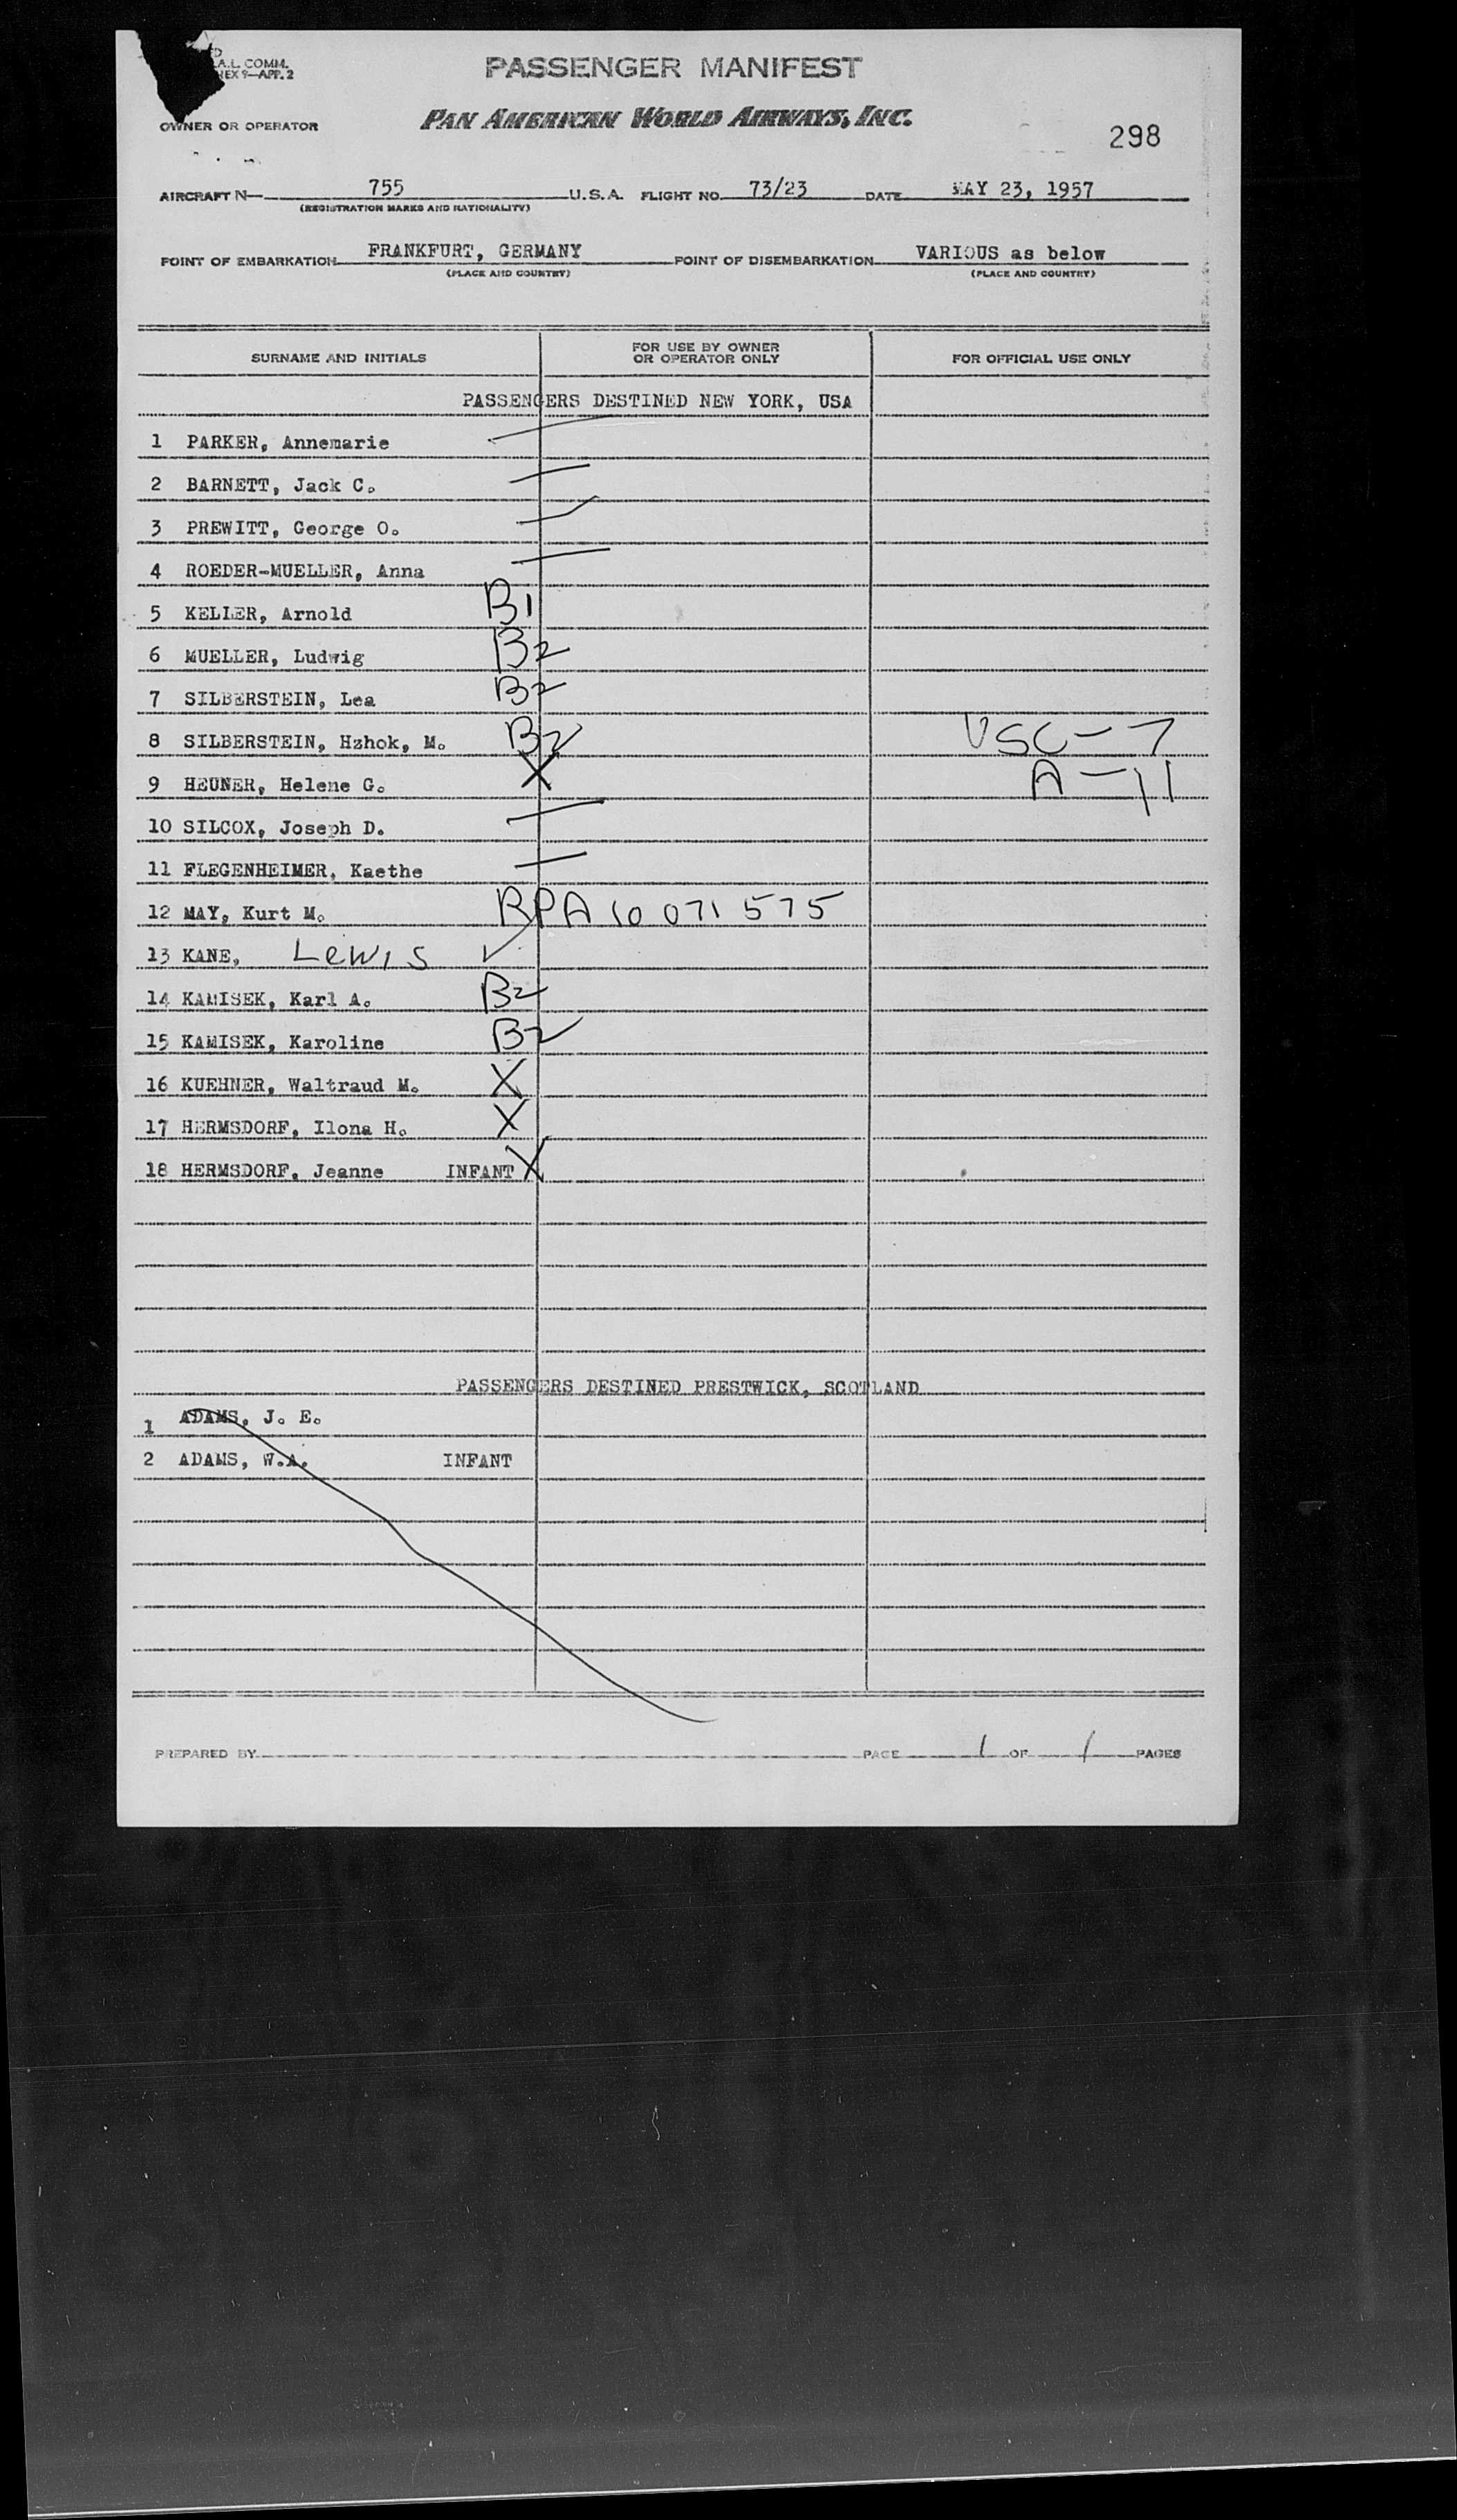 A.L. COMM.
EX 9—APP. 2
PASSENGER MANIFEST
OWNER OR OPERATOR
PAN AMERICAN WORLD AIRWAYS, INC.
298
AIRCRAFT N— 755 U.S.A. FLIGHT NO. 73/23 DATE MAY 23, 1957
(REGISTRATION MARKS AND NATIONALITY)
POINT OF EMBARKATION FRANKFURT, GERMANY POINT OF DISEMBARKATION VARIOUS as below
(PLACE AND COUNTRY) (PLACE AND COUNTRY)
SURNAME AND INITIALS FOR USE BY OWNER OR OPERATOR ONLY FOR OFFICIAL USE ONLY
PASSENGERS DESTINED NEW YORK, USA
1 PARKER, Annemarie
2 BARNETT, Jack C.
3 PREWITT, George O.
4 ROEDER-MUELLER, Anna
5 KELLER, Arnold B1
6 MUELLER, Ludwig B2
7 SILBERSTEIN, Lea B2
8 SILBERSTEIN, Hzhok, M. B2 USC-7
9 HEUNER, Helene G. X A-11
10 SILCOX, Joseph D.
11 FLEGENHEIMER, Kaethe
12 MAY, Kurt M. RPA 10 071 575
13 KANE, Lewis ✓
14 KAMISEK, Karl A. B2
15 KAMISEK, Karoline B2
16 KUEHNER, Waltraud M. X
17 HERMSDORF, Ilona H. X
18 HERMSDORF, Jeanne INFANT X
PASSENGERS DESTINED PRESTWICK, SCOTLAND
1 ADAMS, J. E.
2 ADAMS, W.A. INFANT
PREPARED BY PAGE 1 OF 1 PAGES